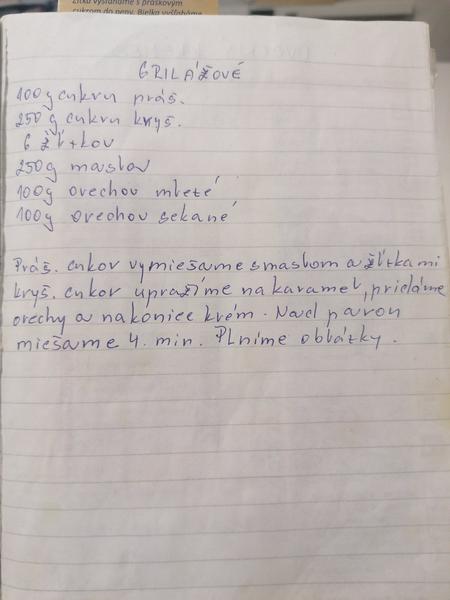 žĺtka vyšľaháme s práškovým
cukrom do peny. Bielka vyšľaháme
GRILÁŽOVÉ
100g cukru práš.
250g cukru kryš.
6 žĺtkov
250g maslov
100g orechov mleté
100g orechov sekané
Práš. cukor vymiešame s maslom a žĺtkami
kryš. cukor upražíme na karamel, pridáme
orechy a nakoniec krém. Nad parou
miešame 4. min. Plníme oblátky.